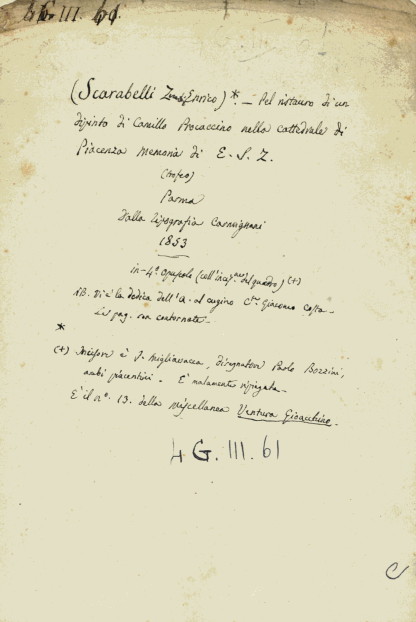 4G. III. 61.
(Scarabelli Enrico) *. — Del ristauro di un
dipinto di Camillo Procaccino nella cattedrale di
Piacenza memoria di E. S. Z.
(trofeo)
Parma
Dalla tipografia Carmignani
1853
in-4º opuscolo (coll'incis.ne del quadro) (+)
NB. Vi è la dedica dell'A. al cugino C.te Giacomo Costa—
Le pag. son contornate—
*
(+) Incisore è S. Migliavacca, disegnatore Paolo Bozzini,
ambi piacentini. È malamente ripiegata—
È il nº. 13. della miscellanea Ventura Gioacchino.
4 G. III. 61